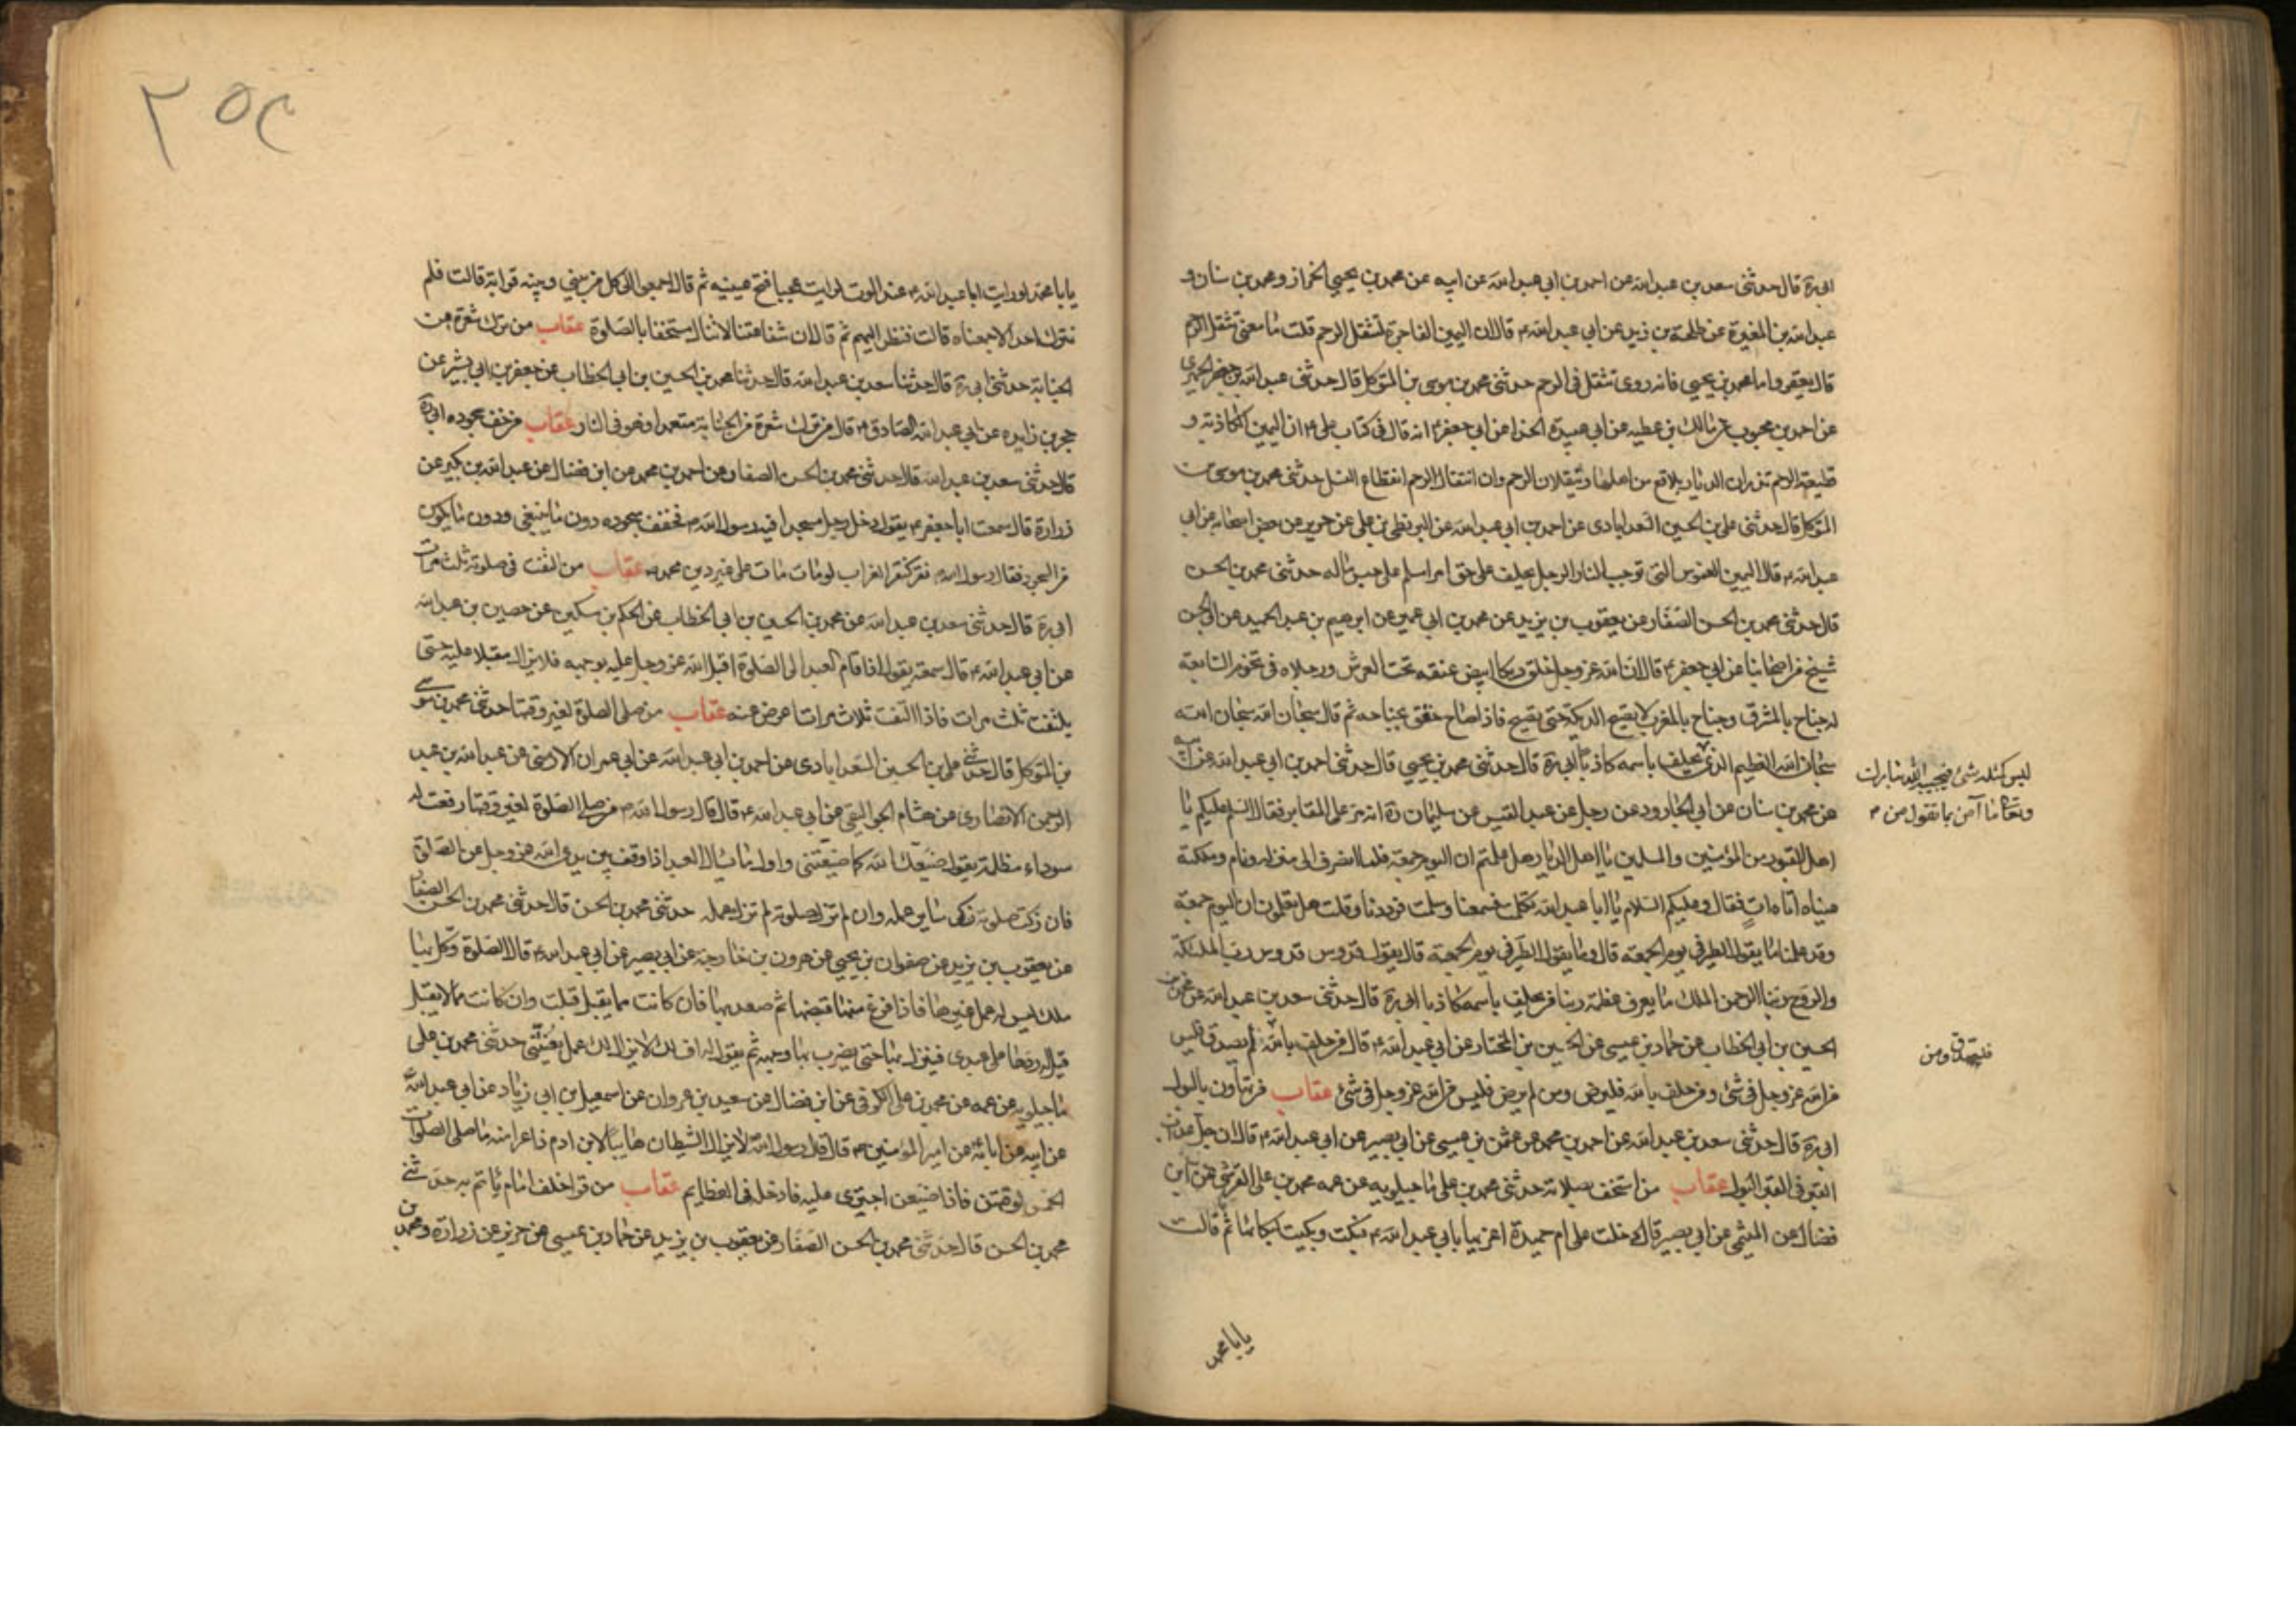 ابي ره قال حدثني سعد بن عبد الله عن احمد بن ابي عبد الله عن ابيه عن محمد بن يحيى الخزاز ومحمد بن سنان و
عبد الله بن المغيرة عن طلحة بن زيد عن ابي عبد الله ع قال ان اليمين الفاجرة لتثقل الرحم قلت ما معنى تثقل الرحم
قال يعقر واما محمد بن يحيى فانه روى تثقل في الرحم حدثني محمد بن موسى بن المتوكل قال حدثني عبد الله بن جعفر الحميري
عن احمد بن محبوب عن مالك بن عطيه عن ابي عبيدة الحذا عن ابي جعفر ع انه قال في كتاب علي ع ان اليمين الكاذبة و
قطيعة الرحم تذران الديار بلاقع من اهلها وتثقلان الرحم وان انتقال الرحم انقطاع النسل حدثني محمد بن موسى بن
المتوكل قال حدثني علي بن الحسين السعد ابادي عن احمد بن ابي عبد الله عن البزنطي عن علي عن حريز عن بعض اصحابه عن ابي
عبد الله ع قال اليمين الغموس التي توجب النار الرجل يحلف على حق امرا مسلم على حبس ماله حدثني محمد بن الحسن
قال حدثني محمد بن الحسن الصفار عن يعقوب بن يزيد عن محمد بن ابي عمير عن ابرهيم بن عبد الحميد عن ابي الحسن
شيخ من اصحابنا عن ابي جعفر ع قال ان الله عز وجل خلق ديكا ابيض عنقه تحت العرش ورجلاه في تخوم السابعة
له جناح بالمشرق وجناح بالمغرب لا يصيح الديكة حتى يصيح فاذا صاح خفق بجناحه ثم قال سبحان الله سبحان الله
سبحان الله العظيم الذي يحلف باسمه كاذبا ابي ره قال حدثني محمد بن يحيى قال حدثني احمد بن ابي عبد الله عن ابيه
ليس كمثله شئ فيجيبه الله تبارك
وتعالى ما آمن بما تقول من
عن محمد بن سنان عن ابي الجارود عن رجل عن عبد القيس عن سلمان ره انه مر على المقابر فقال السلم عليكم يا
اهل القبور من المؤمنين والمسلمين يا اهل الديار هل علمتم ان اليوم جمعة فلما انصرف الى منزله ونام وملكته
عيناه اتاه ات فقال وعليكم السلام يا ابا عبد الله تكلمت فسمعنا وسلمت فرددنا وقلت هل تعلمون ان اليوم جمعة
وقد علمنا ما يقول الطير في يوم الجمعة قال وما يقول الطير في يوم الجمعة قال يقول قدوس قدوس رب الملئكة
والروح ربنا الرحمن الملك ما يعرف عظمة ربنا من يحلف باسمه كاذبا ابي ره قال حدثني سعد بن عبد الله عن محمد بن
الحسين بن ابي الخطاب عن حماد بن عيسى عن الحسين بن المختار عن ابي عبد الله ع قال من حلف بالله فلم يصدق فليس
فليصدق ومن
من الله عز وجل في شئ ومن حلف بالله فليرض ومن لم يرض فليس من الله عز وجل في شئ عقاب من تهاون بالبول
ابي ره قال حدثني سعد بن عبد الله عن احمد بن محمد عن عثمن بن عيسى عن ابي بصير عن ابي عبد الله ع قال ان جل عذاب
القبر في القبر البول عقاب من استخف بصلاته حدثني محمد بن علي ماجيلويه عن عمه محمد بن علي القرشي عن ابن
فضال عن الميثمي عن ابي بصير قال دخلت على ام حميدة اعزيها بابي عبد الله ع فبكت وبكيت لبكائها ثم قالت
يابا محمد
٢٥٤
يابا محمد لو رايت ابا عبد الله ع عند الموت لرايت عجبا فتح عينيه ثم قال اجمعوا الى كل من بيني وبينه قرابة قالت فلم
نترك احدا الا جمعناه قالت فنظر اليهم ثم قال ان شفاعتنا لا تنال مستخفا بالصلوة عقاب من ترك شعرة من
الجنابة حدثني ابي ره قال حدثنا سعد بن عبد الله قال حدثنا محمد بن الحسين بن ابي الخطاب عن جعفر بن ابي بشير عن
حجر بن زايده عن ابي عبد الله الصادق ع قال من ترك شعرة من الجنابة متعمدا فهو في النار عقاب من خفف سجوده ابي ره
قال حدثني سعد بن عبد الله قال حدثني محمد بن الحسن الصفار عن احمد بن محمد عن ابن فضال عن عبد الله بن بكير عن
زرارة قال سمعت ابا جعفر ع يقول دخل رجل مسجدا فيه رسول الله ص فخفف سجوده دون ما ينبغي ودون ما يكون
من السجود فقال رسول الله ص نقر كنقر الغراب لو مات مات على غير دين محمد ص عقاب من التفت في صلوته ثلث مرات
ابي ره قال حدثني سعد بن عبد الله عن محمد بن الحسين بن ابي الخطاب عن الحكم بن مسكين عن حصين بن عبد الله
عن ابي عبد الله ع قال سمعته يقول اذا قام العبد الى الصلوة اقبل الله عز وجل عليه بوجهه فلا يزال مقبلا عليه حتى
يلتفت ثلث مرات فاذا التفت ثلاث مرات اعرض عنه عقاب من صلى الصلوة لغير وقتها حدثني محمد بن موسى
بن المتوكل قال حدثني علي بن الحسين السعد ابادي عن احمد بن ابي عبد الله عن ابي عمران الارمني عن عبد الله بن عبد
الرحمن الانصاري عن هشام الجواليقي عن ابي عبد الله ع قال قال رسول الله ص من صلى الصلوة لغير وقتها رفعت له
سوداء مظلمة يقول ضيعك الله كما ضيعتني واول ما يسال العبد اذا وقف بين يدي الله عز وجل عن الصلوة
فان زكت صلوته زكى ساير عمله وان لم تزك صلوته لم تزك عمله حدثني محمد بن الحسن قال حدثني محمد بن الحسن الصفار
عن يعقوب بن يزيد عن صفوان بن يحيى عن هرون بن خارجة عن ابي بصير عن ابي عبد الله ع قال الصلوة وكل بها
ملك ليس له عمل غيرها فاذا فرغ منها قبضها ثم صعد بها فان كانت مما يقبل قبلت وان كانت مما لا يقبل
قيل له ردها على عبدي فينزل بها حتى يضرب بها وجهه ثم يقول له اف لك لا يزال لك عمل يعنيني حدثني محمد بن علي
ماجيلويه عن عمه عن محمد بن علي الكوفي عن ابن فضال عن سعيد بن غزوان عن اسمعيل بن ابي زياد عن ابي عبد الله
عن ابيه عن ابائه عن امير المؤمنين ع قال قال رسول الله لا يزال الشيطان هايبا لابن ادم ذاعرا منه ما صلى الصلوات
الخمس لوقتهن فاذا ضيعهن اجترى عليه فادخله في العظايم عقاب من قرا خلف امام ياتم به حدثني
محمد بن الحسن قال حدثني محمد بن الحسن الصفار عن يعقوب بن يزيد عن حماد بن عيسى عن حريز عن زرارة ومحمد بن